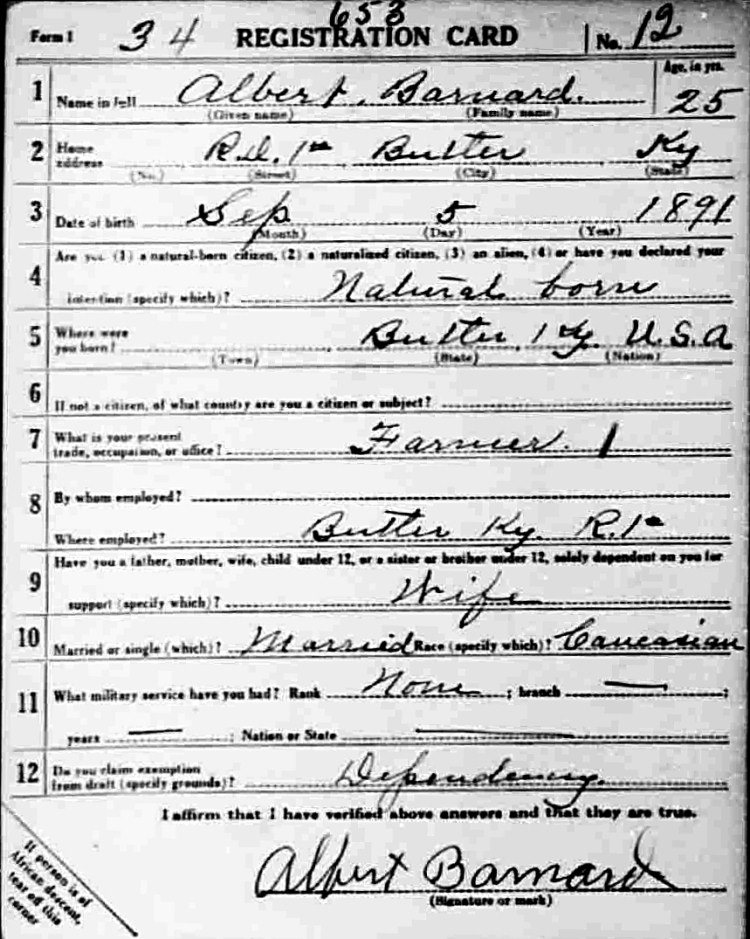 653
Form 1 34 REGISTRATION CARD No. 12
1 Name in full Albert Barnard. Age, in yrs. 25
(Given name) (Family name)
2 Home address R.D. 1 Butler Ky
(No.) (Street) (City) (State)
3 Date of birth Sep 5 1891
(Month) (Day) (Year)
4 Are you (1) a natural-born citizen, (2) a naturalized citizen, (3) an alien, (4) or have you declared your
intention (specify which)? Natural born
5 Where were you born? Butler, Ky. U.S.A
(Town) (State) (Nation)
6 If not a citizen, of what country are you a citizen or subject?
7 What is your present trade, occupation, or office? Farmer. 1
8 By whom employed?
Where employed? Butler Ky. R.1
9 Have you a father, mother, wife, child under 12, or a sister or brother under 12, solely dependent on you for
support (specify which)? Wife
10 Married or single (which)? Married Race (specify which)? Caucasian
11 What military service have you had? Rank None ; branch — ;
years — ; Nation or State —
12 Do you claim exemption from draft (specify grounds)? Dependency.
I affirm that I have verified above answers and that they are true.
Albert Barnard
(Signature or mark)
If person is of
African descent,
tear off this
corner